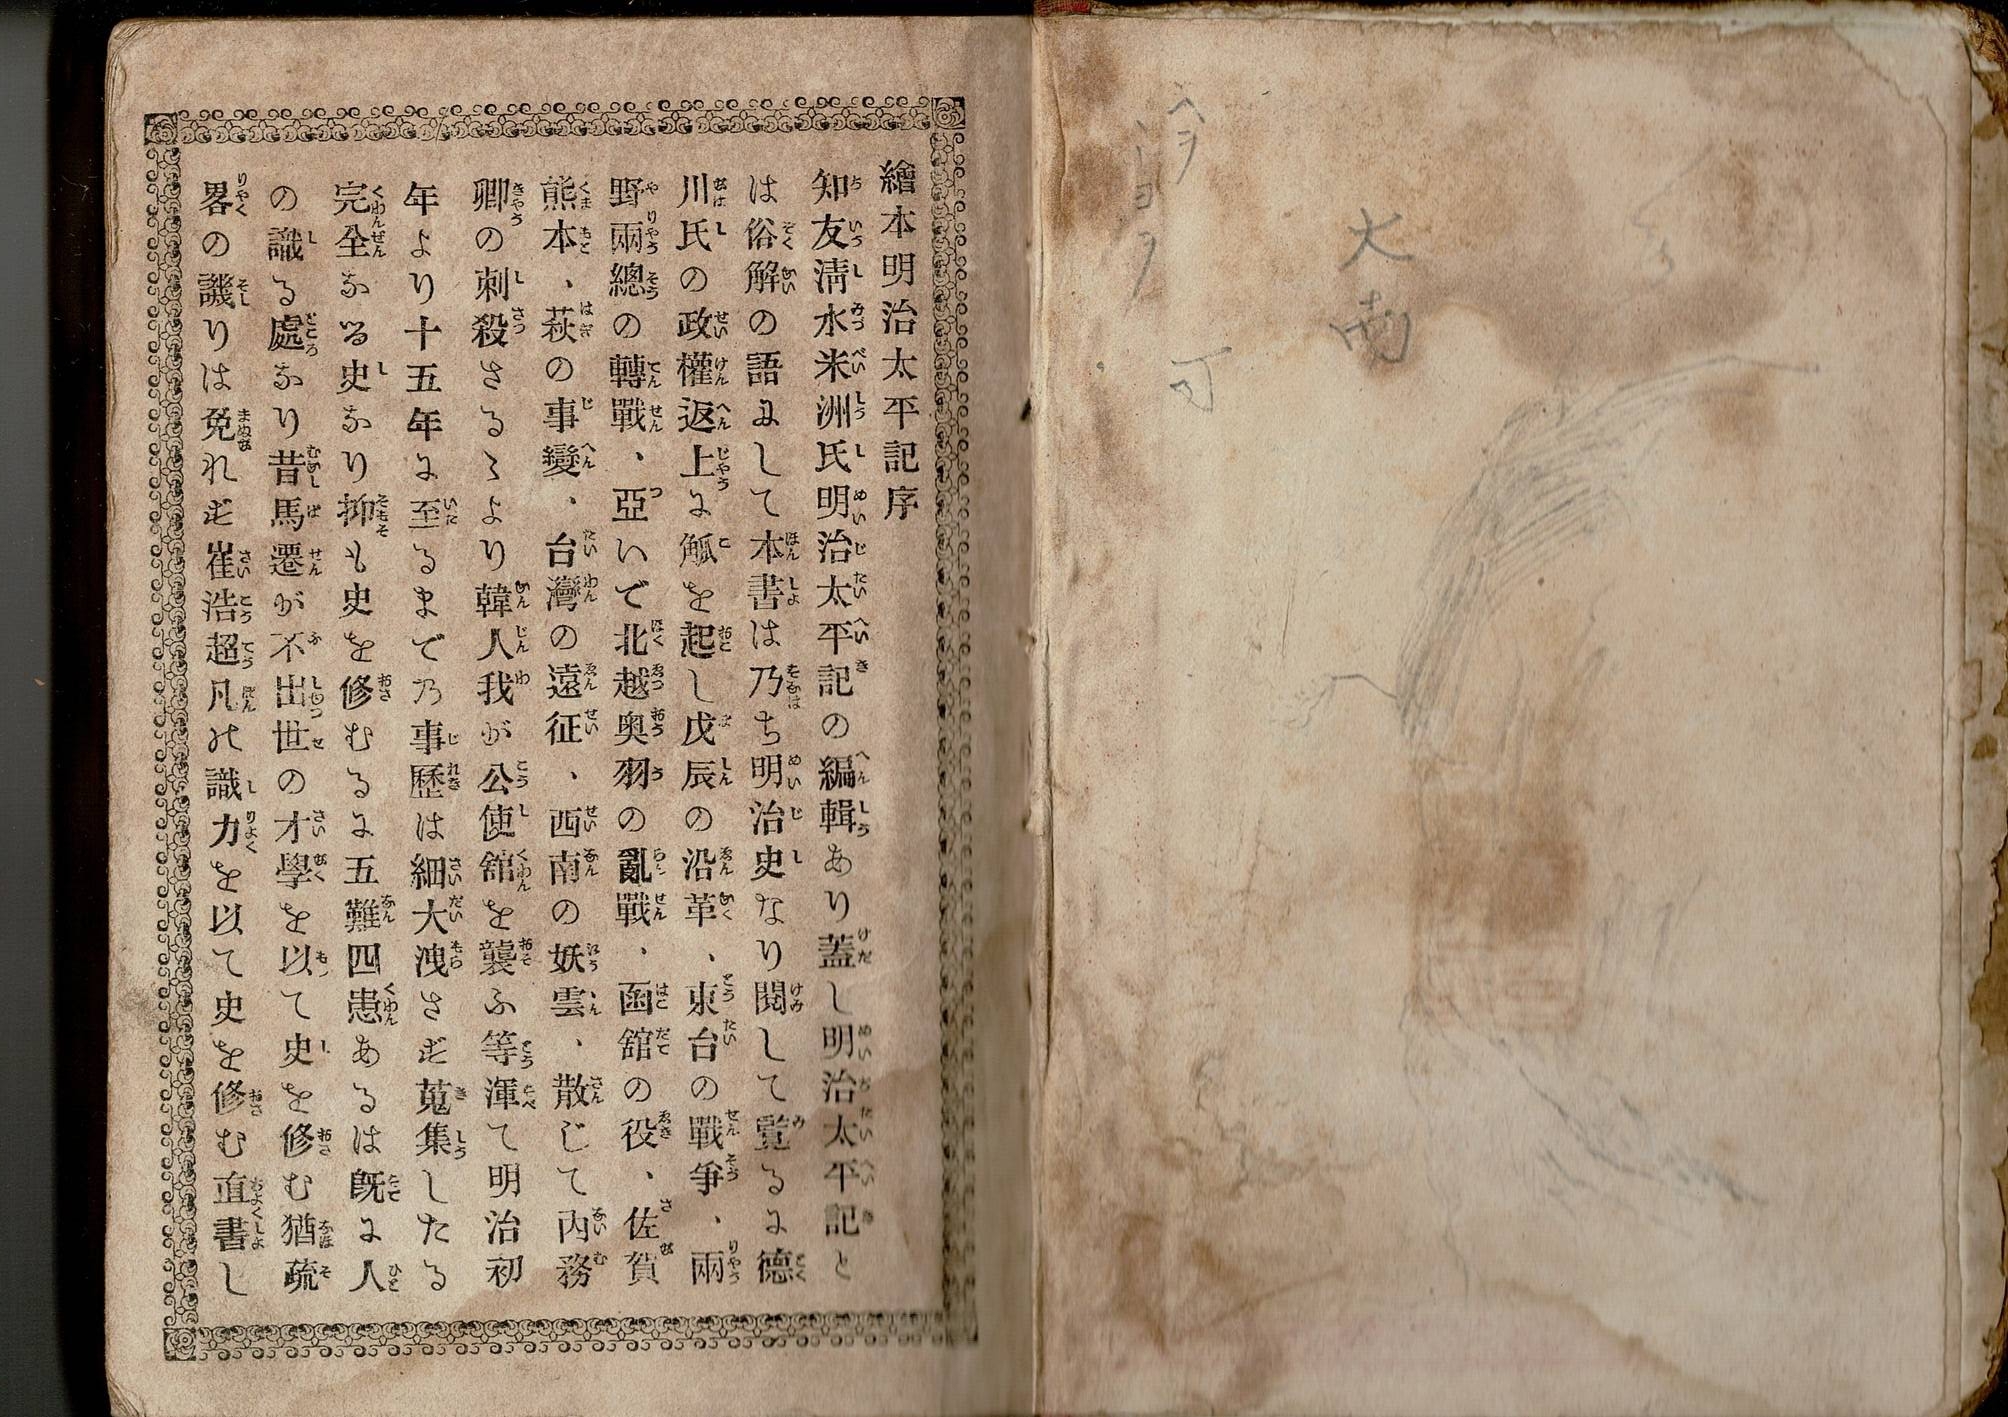 大
南
繪本明治太平記序
知友淸水米洲氏明治太平記の編輯あり蓋し明治太平記と
は俗解の語にして本書は乃ち明治史なり閲して覽るに德
川氏の政權返上に觚を起し戊辰の沿革、東台の戰爭、兩
野兩總の轉戰、亞いで北越奥羽の亂戰、函舘の役、佐賀
熊本、萩の事變、台灣の遠征、西南の妖雲、散じて內務
卿の刺殺さるゝより韓人我が公使舘を襲ふ等渾て明治初
年より十五年に至るまで乃事歷は細大洩さず蒐集したる
完全なる史なり抑も史を修むるに五難四患あるは旣に人
の識る處なり昔馬遷が不出世の才學を以て史を修む猶疏
畧の譏りは免れず崔浩超凡の識力を以て史を修む直書し